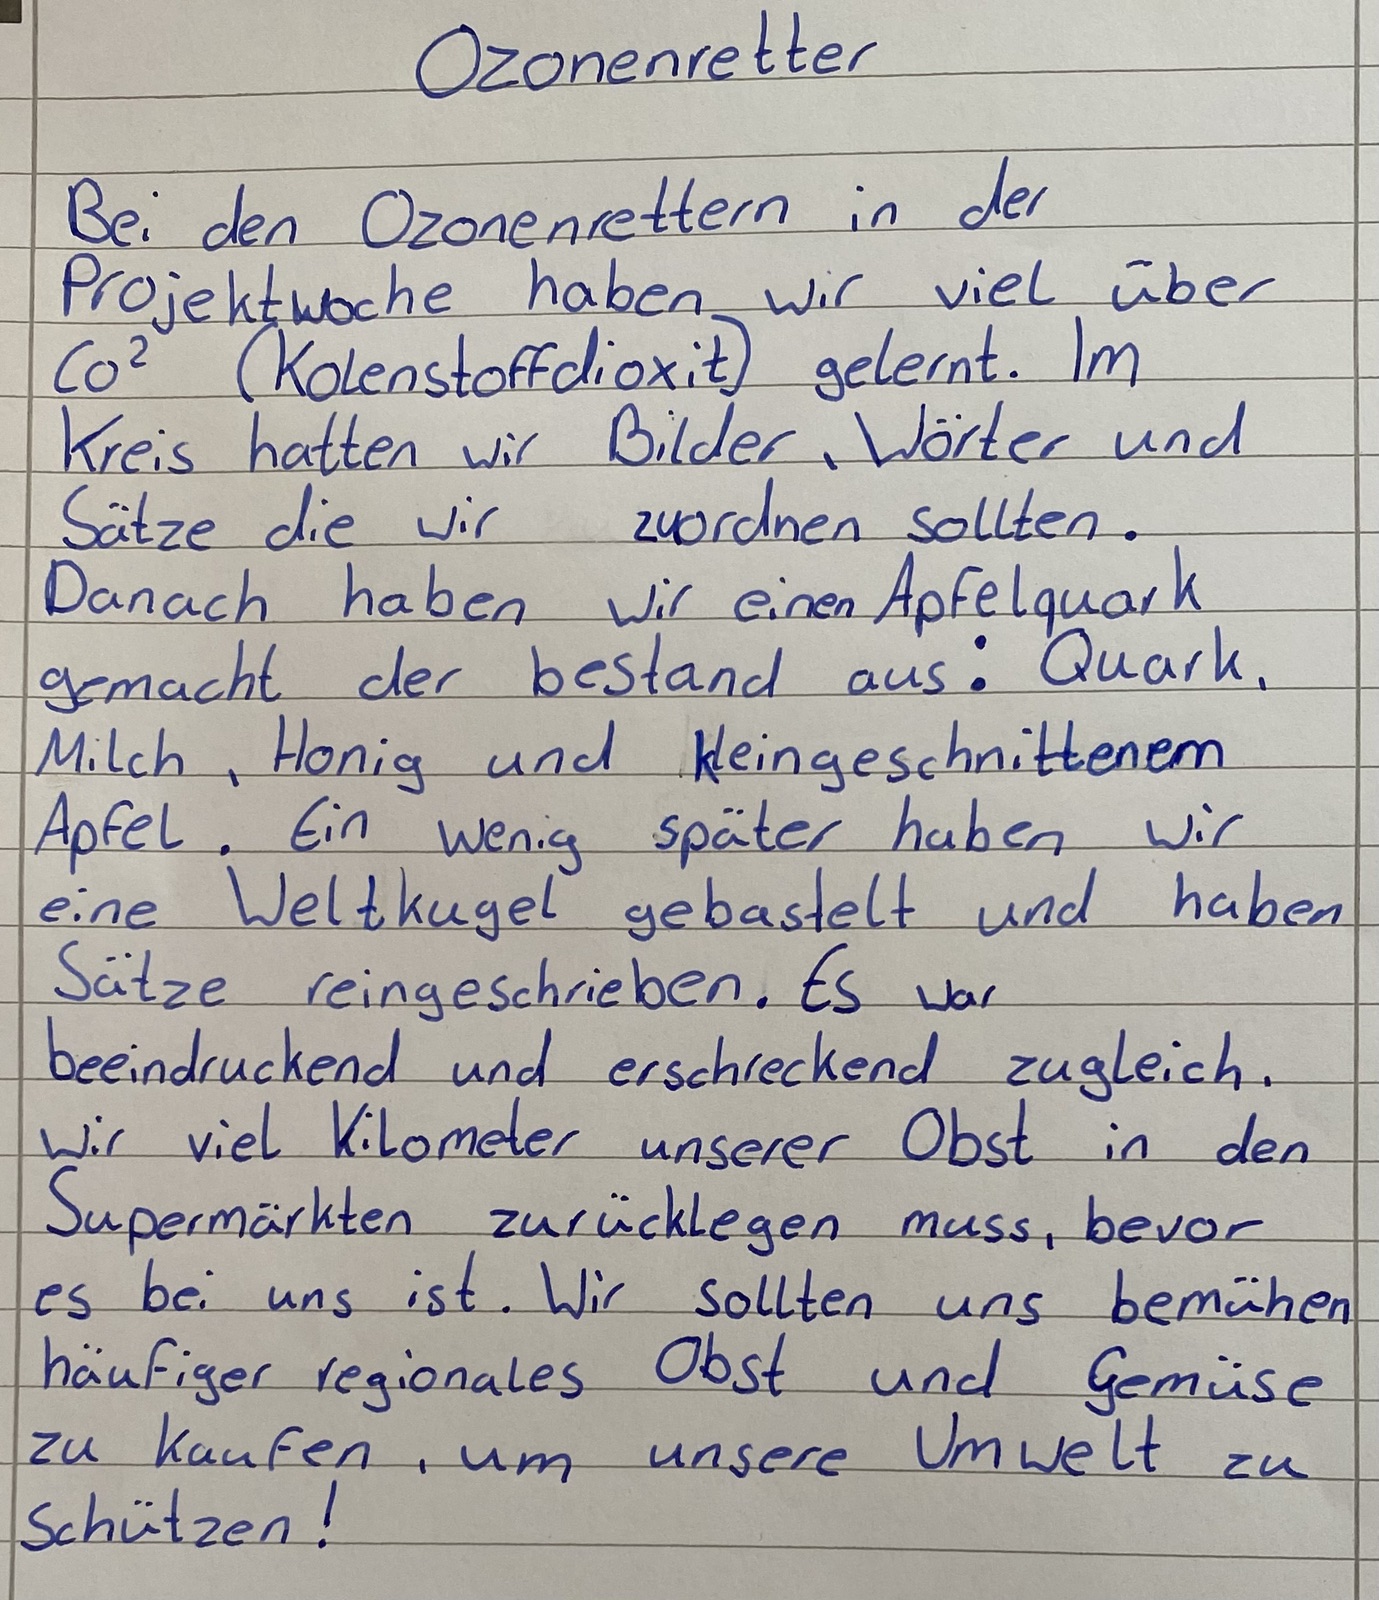 Ozonenretter
Bei den Ozonenrettern in der
Projektwoche haben wir viel über
Co² (Kolenstoffdioxit) gelernt. Im
Kreis hatten wir Bilder, Wörter und
Sätze die wir zuordnen sollten.
Danach haben wir einen Apfelquark
gemacht der bestand aus: Quark,
Milch, Honig und kleingeschnittenem
Apfel. Ein wenig später haben wir
eine Weltkugel gebastelt und haben
Sätze reingeschrieben. Es war
beeindruckend und erschreckend zugleich.
Wir viel Kilometer unserer Obst in den
Supermärkten zurücklegen muss, bevor
es bei uns ist. Wir sollten uns bemühen
häufiger regionales Obst und Gemüse
zu kaufen, um unsere Umwelt zu
schützen!